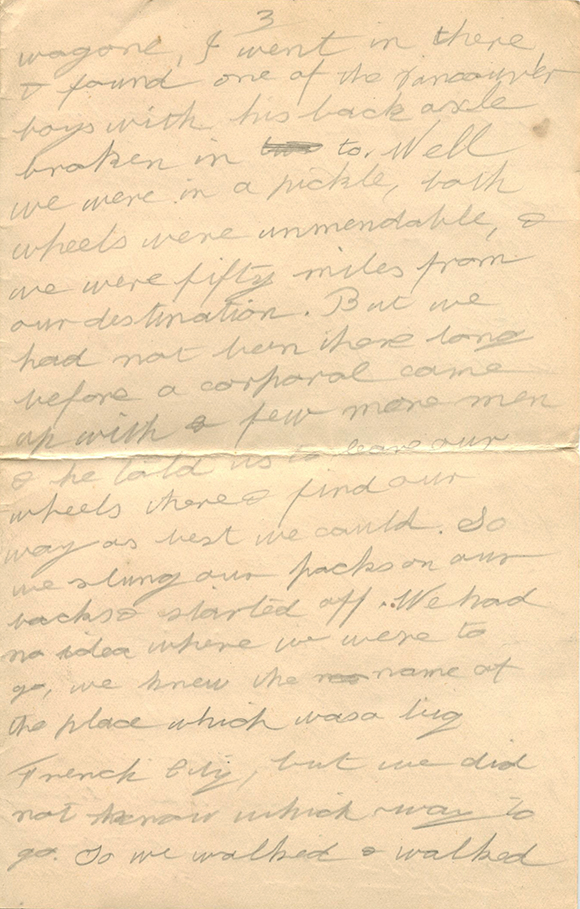 3
wagone, I went in there
& found one of the Vancouver
boys with his back axle
broken in two to. Well
we were in a pickle, both
wheels were unmendable, &
we were fifty miles from
our destination. But we
had not been there long
before a corporal came
up with a few more men
& he told us to leave our
wheels there & find our
way as best we could. So
we slung our packs on our
backs & started off. We had
no idea where we were to
go, we knew the name of
the place which was a big
French City, but we did
not know which way to
go. So we walked & walked